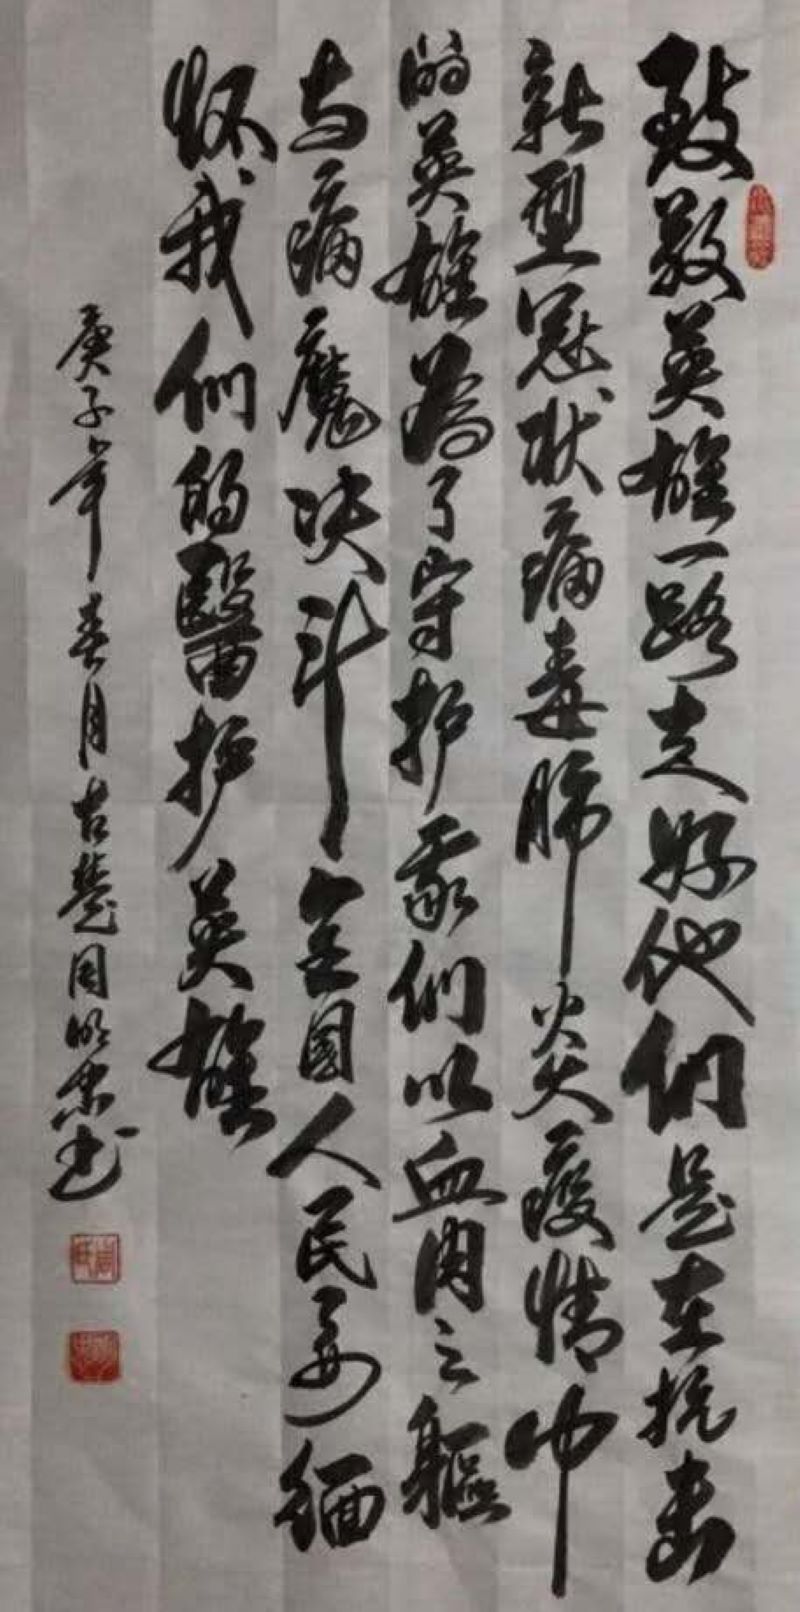 致敬英雄一路走好他们是在抗击
新型冠状病毒肺炎疫情中
的英雄为了守护我们以血肉之躯
与病魔决斗全国人民要缅
怀我们的醫护英雄
庚子年春月古楚周明忠书